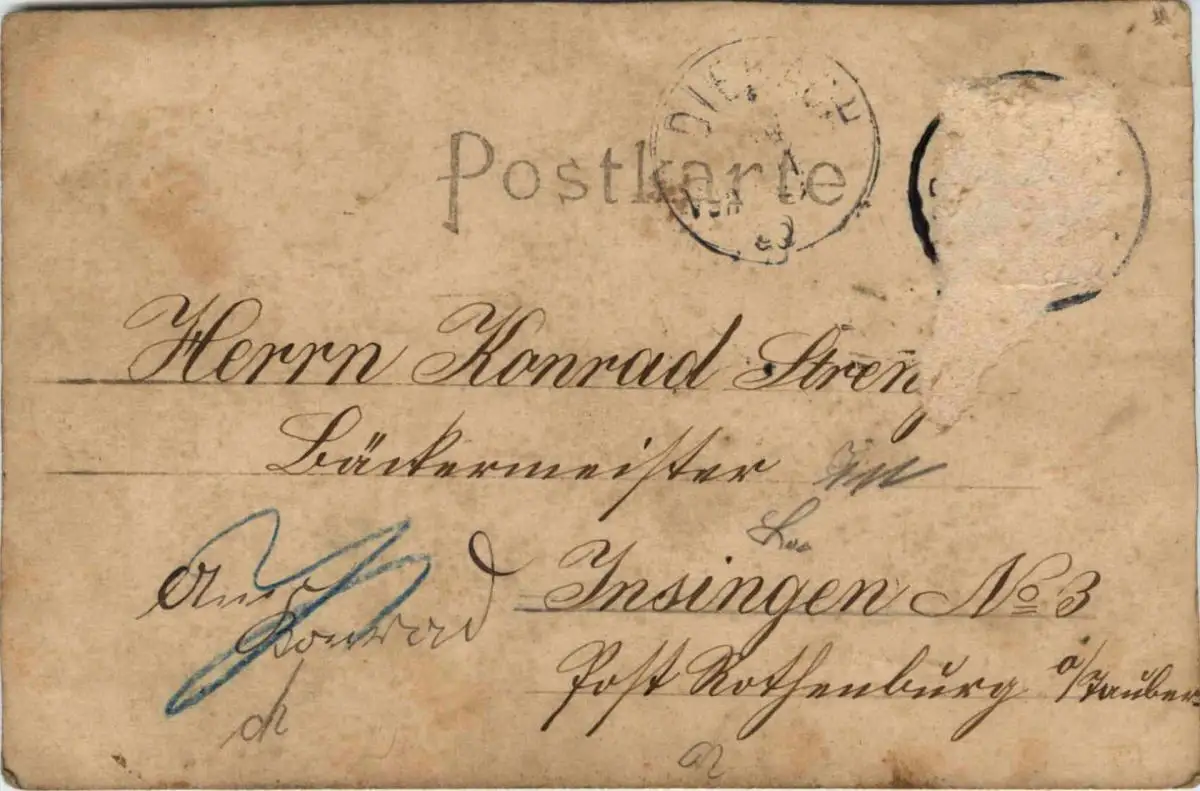 Postkarte
DIEBACH
Herrn Konrad Streng
Bäckermeister
Insingen No 3
Konrad
Post Rothenburg o/Tauber